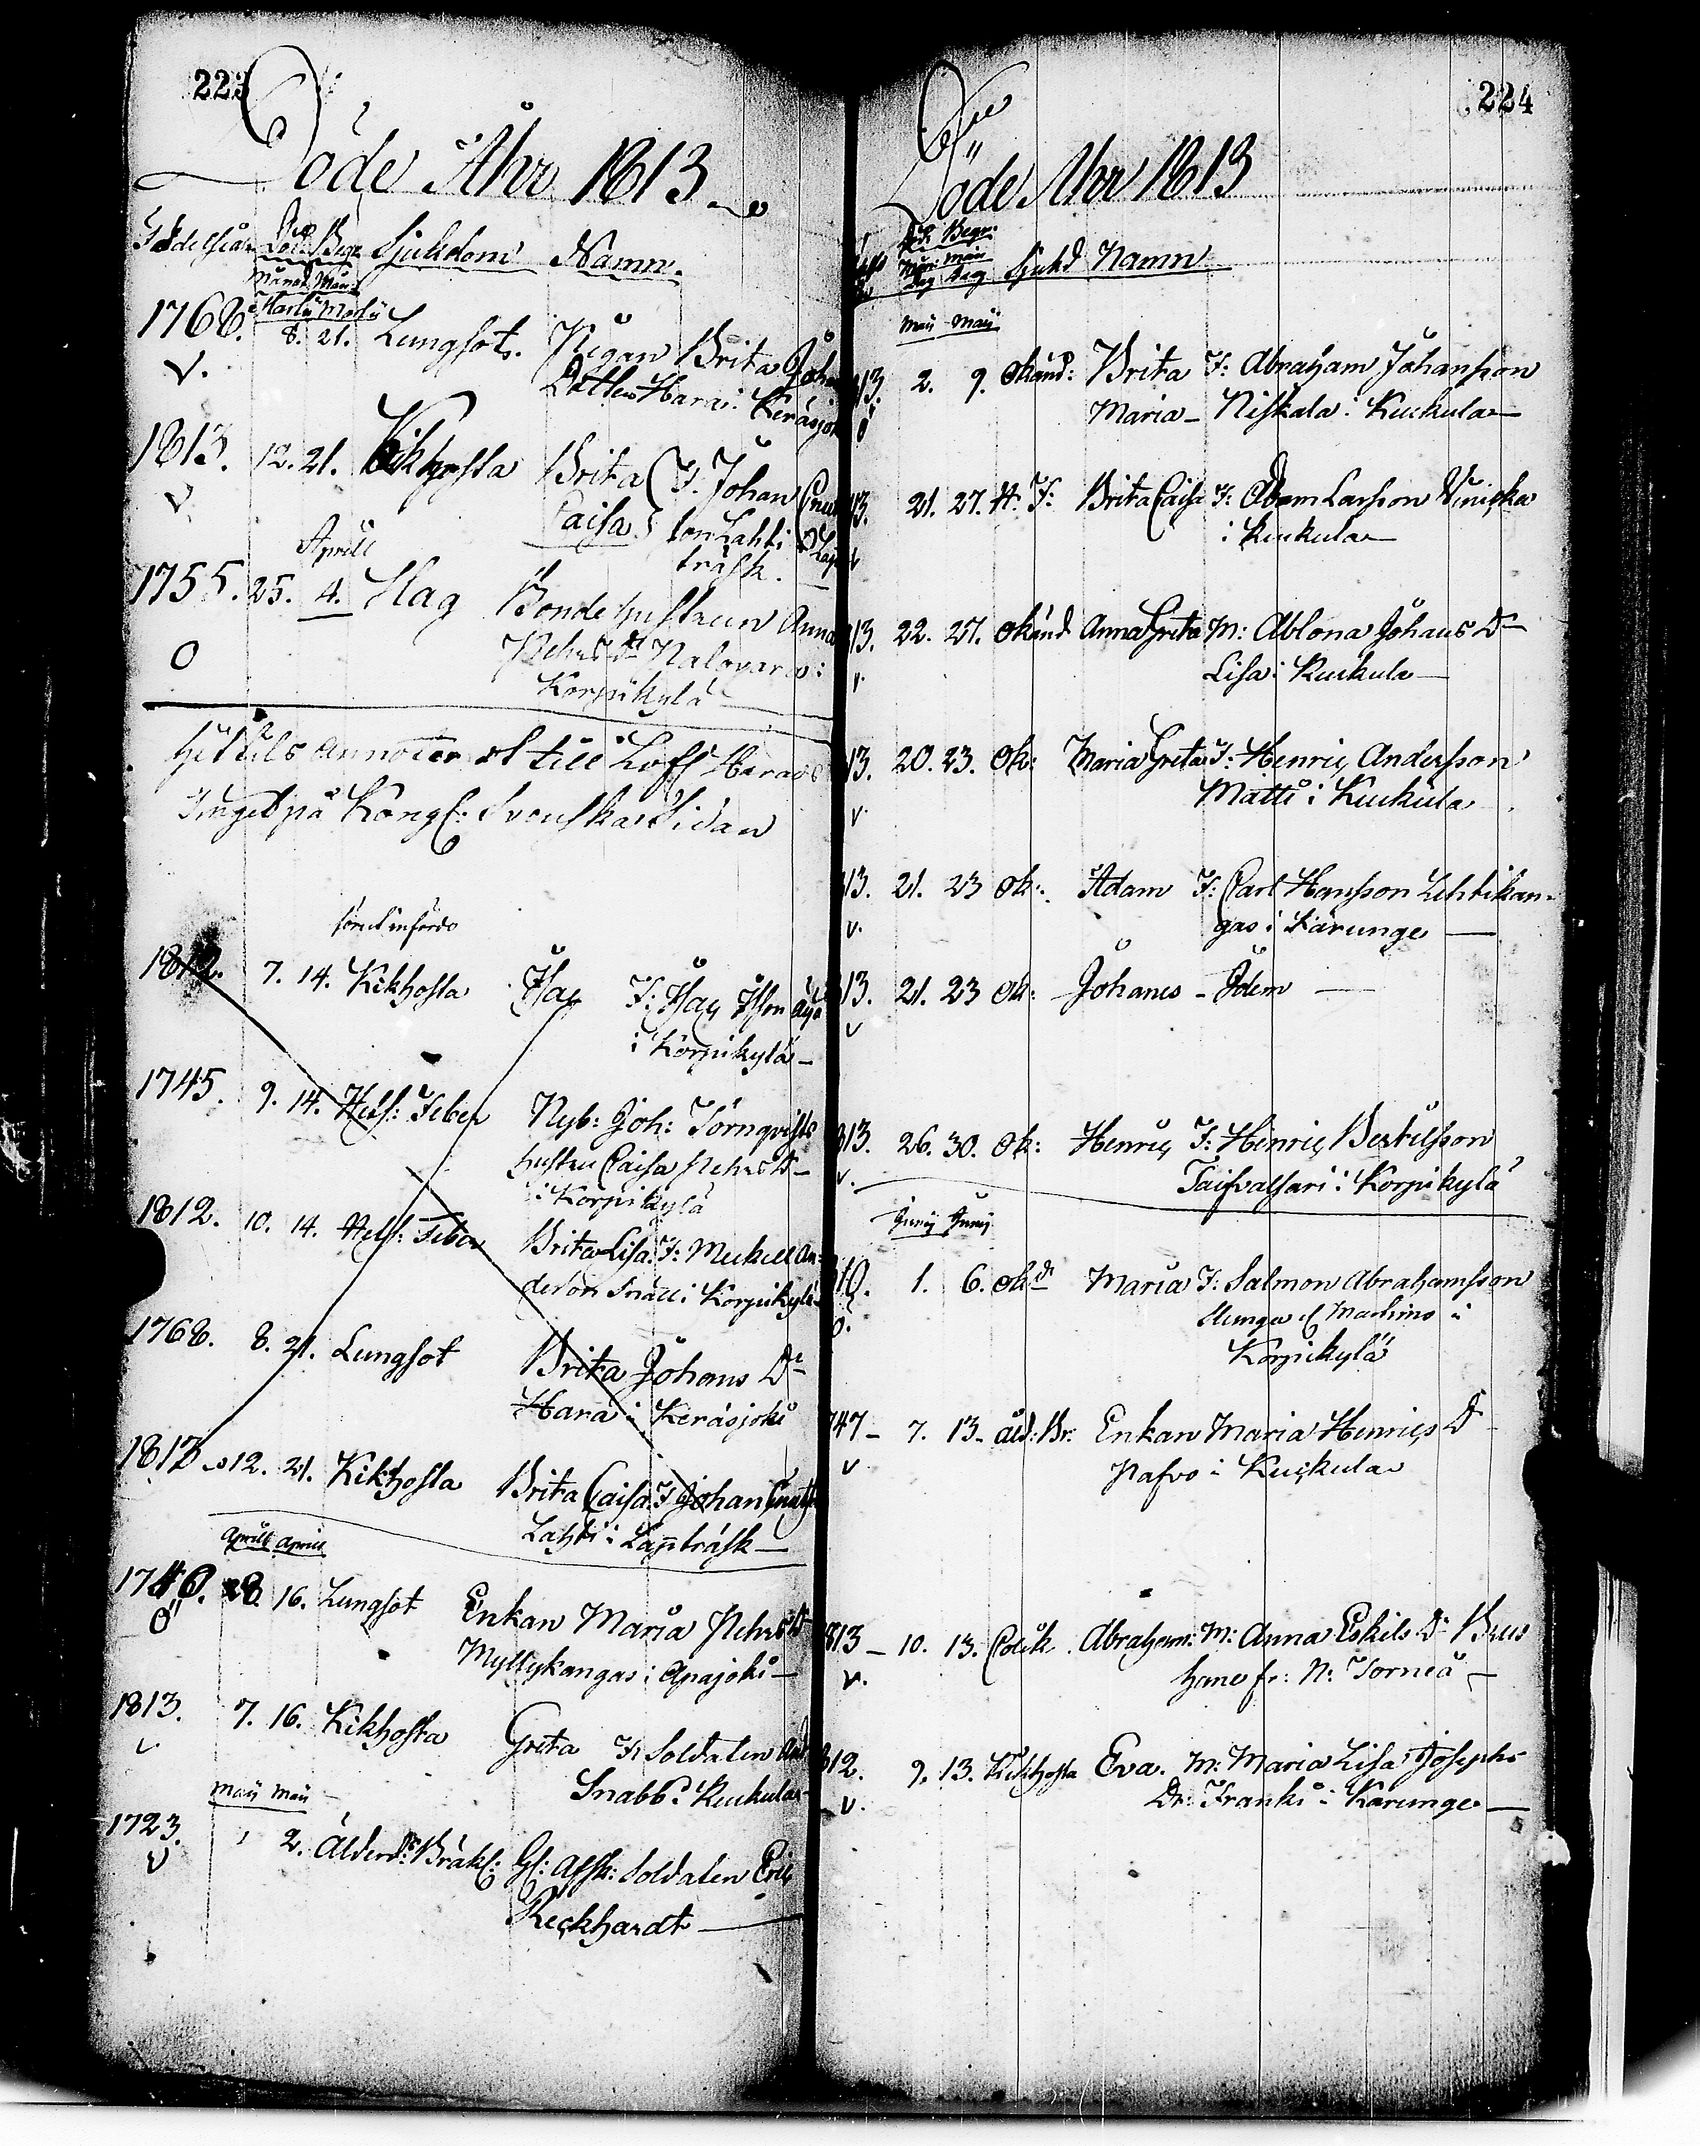 223
Döde Åhr 1813
Födelseår Död Begr: Sjukdom Namn.
Månad Mån:
Martii Martii
1768. 8. 21. Lungsot. Pigan Brita Joh
V. Dotter Hara i Keräsjok
1813. 12. 21. Kikhosta Brita F. Johan Cnut
V Caisa son Lahti i Lap
träsk.
Aprill
1755. 25. 4. Slag Bonde hustrun Anna
O Pehrs Dr Nalovara i
Korpikylä
hitils annoterat till Loff Härads
Tinget på Kongl: Svenska Sidan
förut införde
1812. 7. 14. Kikhosta Isac F: Isac Isson Äijä
i Korpikylä
1745. 9. 14. Hets: Feber Nyb: Joh: Törnqvists
hustru Caisa Pehrs Dr
i Korpikylä
1812. 10. 14. Hets: Feber Brita Lisa F: Mickell An
derson Snäll i Korpikylä
1768. 8. 21. Lungsot Brita Johans Dr
Hara i Keräsjoki
1813 12. 21. Kikhosta Brita Caisa F Johan Cnuts
Lahti i Lapträsk
Aprill April
1740. 28. 16. Lungsot Enkan Maria Pehrs Dr
Ö Myllykangas i Apajoki
1813. 7. 16. Kikhosta Greta F. Soldaten And
Snabb i Kuckula
Maii Maii
1723. 2. Ålderd: Bräkl: Gl: Afsk: Soldaten Eric
V Reckhardt
224
Döde Åhr 1813
Död: Begr:
Mån: Mån
Dag Dag Sjukd Namn
Maii Maii
13. 2. 9. Okänd: Brita F: Abraham Johansson
Ö Maria Niskala i Kuckula
13. 21. 27. H. F: Brita Caisa F: Adam Larsson Viniska
V i Kuckula
13. 22. 27. Okänd Anna Greta M: Ablona Johans Dr
V. Lisa i Kuckula
13. 20. 23. Ok: Maria Greta F: Henric Andersson
V. Matti i Kuckula
13. 21. 23 Ok: Adam F: Carl Hansson Lehtikan-
V. gas i Karunge
813. 21. 23 Ok: Johanes Idem
V
813. 26. 30. Ok: Henric F: Hinric Bertilsson
V. Taifvalsari i Korpikylä
Junij Junij
810. 1. 6. Okd Maria F. Salmon Abrahamsson
Ö. Munga el Marhino i
Korpikylä
747 7. 13. åld: Br: Enkan Maria Henrics Dr
V Pafvo i Kuckula
813 10. 13. Colik. Abraham: M: Anna Eskils Dr Brus
V. hane fr: N: Torneå
812. 9. 13. Kikhosta Eva. M: Maria Lisa Josephs
V. Dr: Franki i Karunge